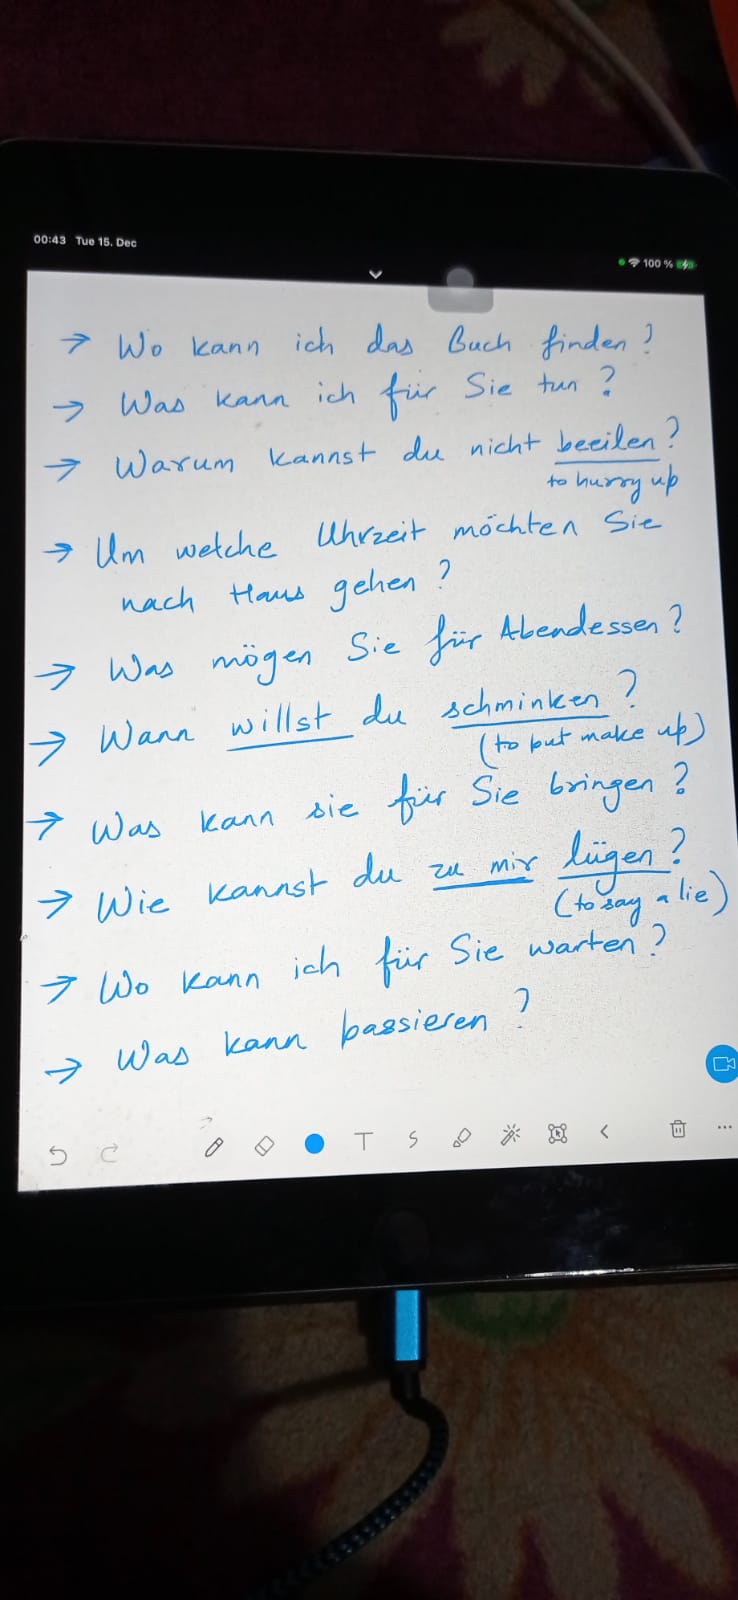 00:43 Tue 15. Dec
100 %
→ Wo kann ich das Buch finden?
→ Was kann ich für Sie tun?
→ Warum kannst du nicht beeilen?
to hurry up
→ Um welche Uhrzeit möchten Sie
nach Haus gehen?
→ Was mögen Sie für Abendessen?
→ Wann willst du schminken?
(to put make up)
→ Was kann sie für Sie bringen?
→ Wie kannst du zu mir lügen?
(to say a lie)
→ Wo kann ich für Sie warten?
→ Was kann passieren?
T